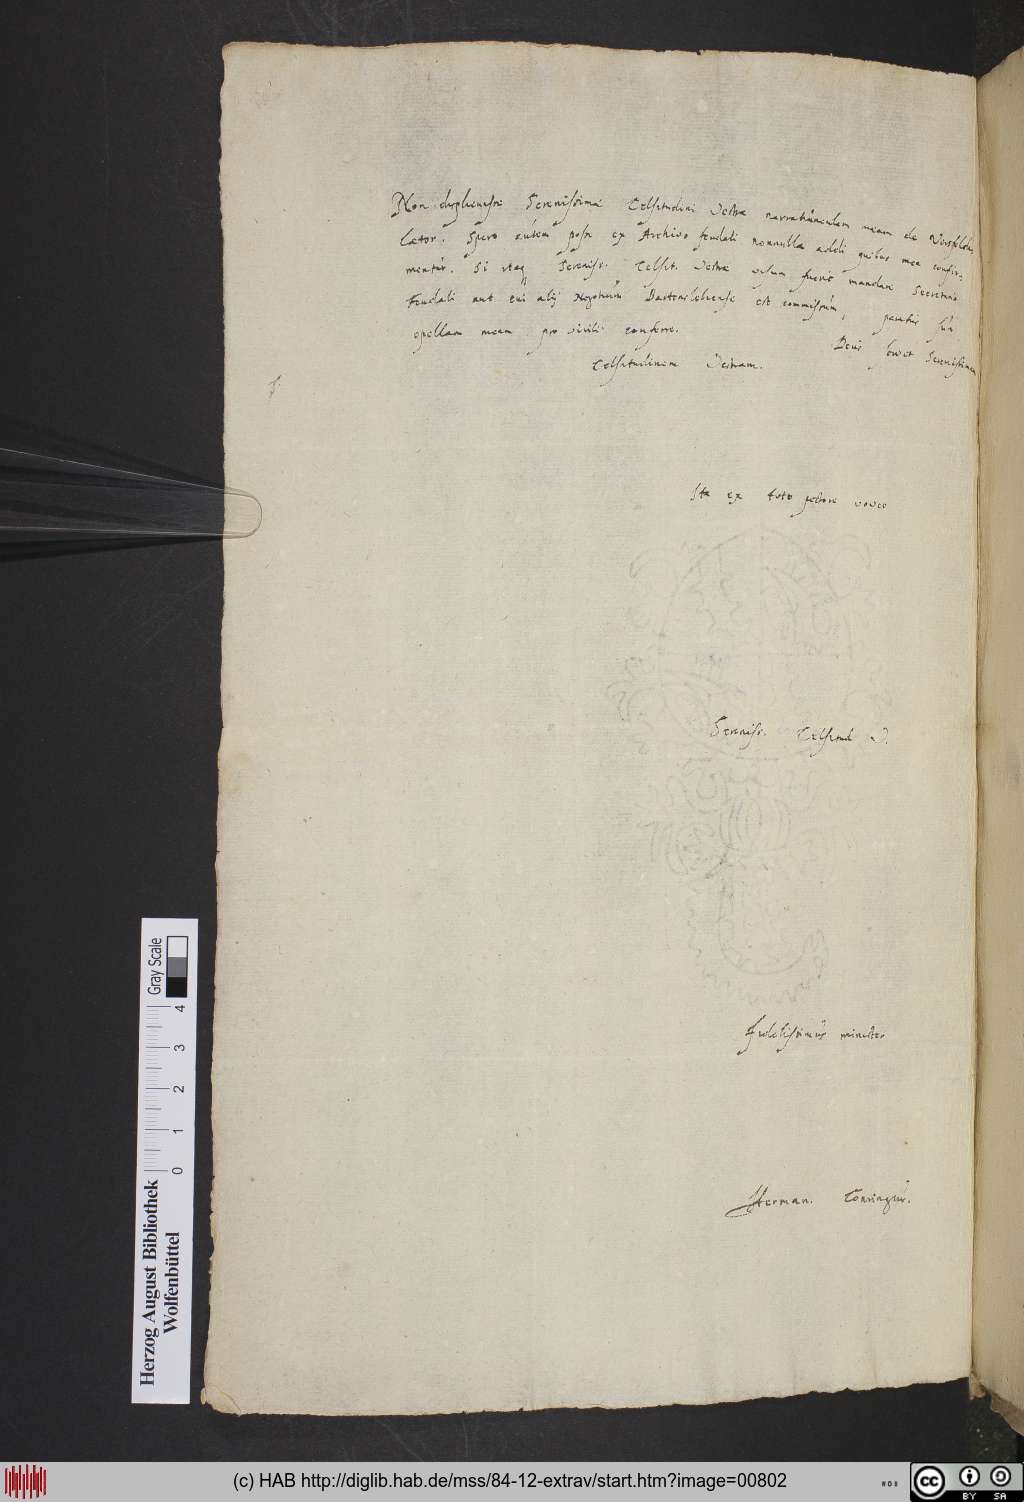 Non displicuisse Serenissimæ Celsitudini Vestræ narratiunculam meam de
lætor. Spero autem posse ex Archivo feudali nonnulla addi quibus mea confir-
mentur. Si itaq Sereniss. Celsit. Vestræ visum fuerit mandare Secretario
Feudali aut cui alij Negotium Bartenslebense est commissum, paratus sum
opellam meam pro virili conferre. Deus servet Serenissimam
Celsitudinem Vestram.
Ita ex toto pectore voveo
Sereniss. Celsitud V.
fidelissimus minister
Herman. Conringius.
Herzog August Bibliothek
Wolfenbüttel
0 1 2 3 4
Gray Scale
(c) HAB http://diglib.hab.de/mss/84-12-extrav/start.htm?image=00802
WDB
cc BY SA